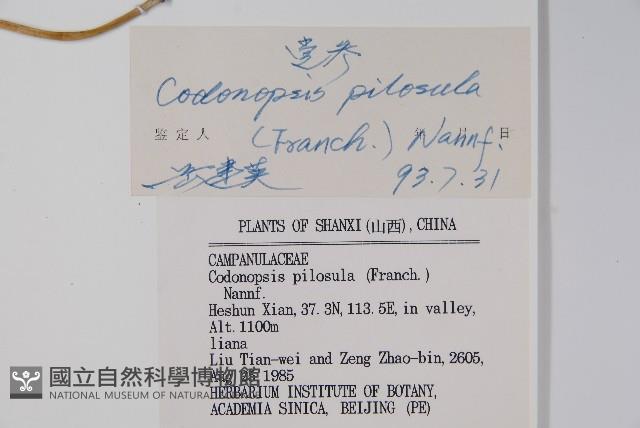 党参
Codonopsis pilosula
鉴定人 (Franch.) Nannf. 日
93.7.31
PLANTS OF SHANXI(山西), CHINA
CAMPANULACEAE
Codonopsis pilosula (Franch.)
Nannf.
Heshun Xian, 37.3N, 113.5E, in valley,
Alt. 1100m
liana
Liu Tian-wei and Zeng Zhao-bin, 2605,
1985
HERBARIUM INSTITUTE OF BOTANY,
ACADEMIA SINICA, BEIJING (PE)
國立自然科學博物館
NATIONAL MUSEUM OF NATURAL